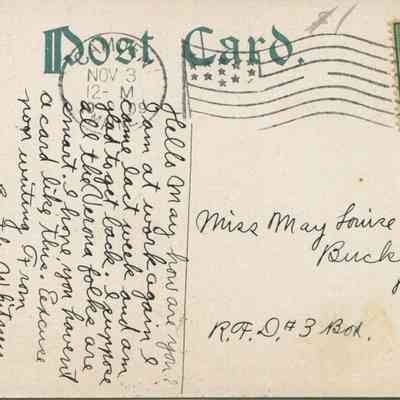 Post Card.
NOV 3
12- M
Hello May, how are you?
I am at work again I
came last week and am
glad to get back. I suppose
all the Verona folks are
smart. I hope you havent
a card like this. Excuse
poor writing. From
Miss May Louise
Buck
R.F.D. #3 Box.